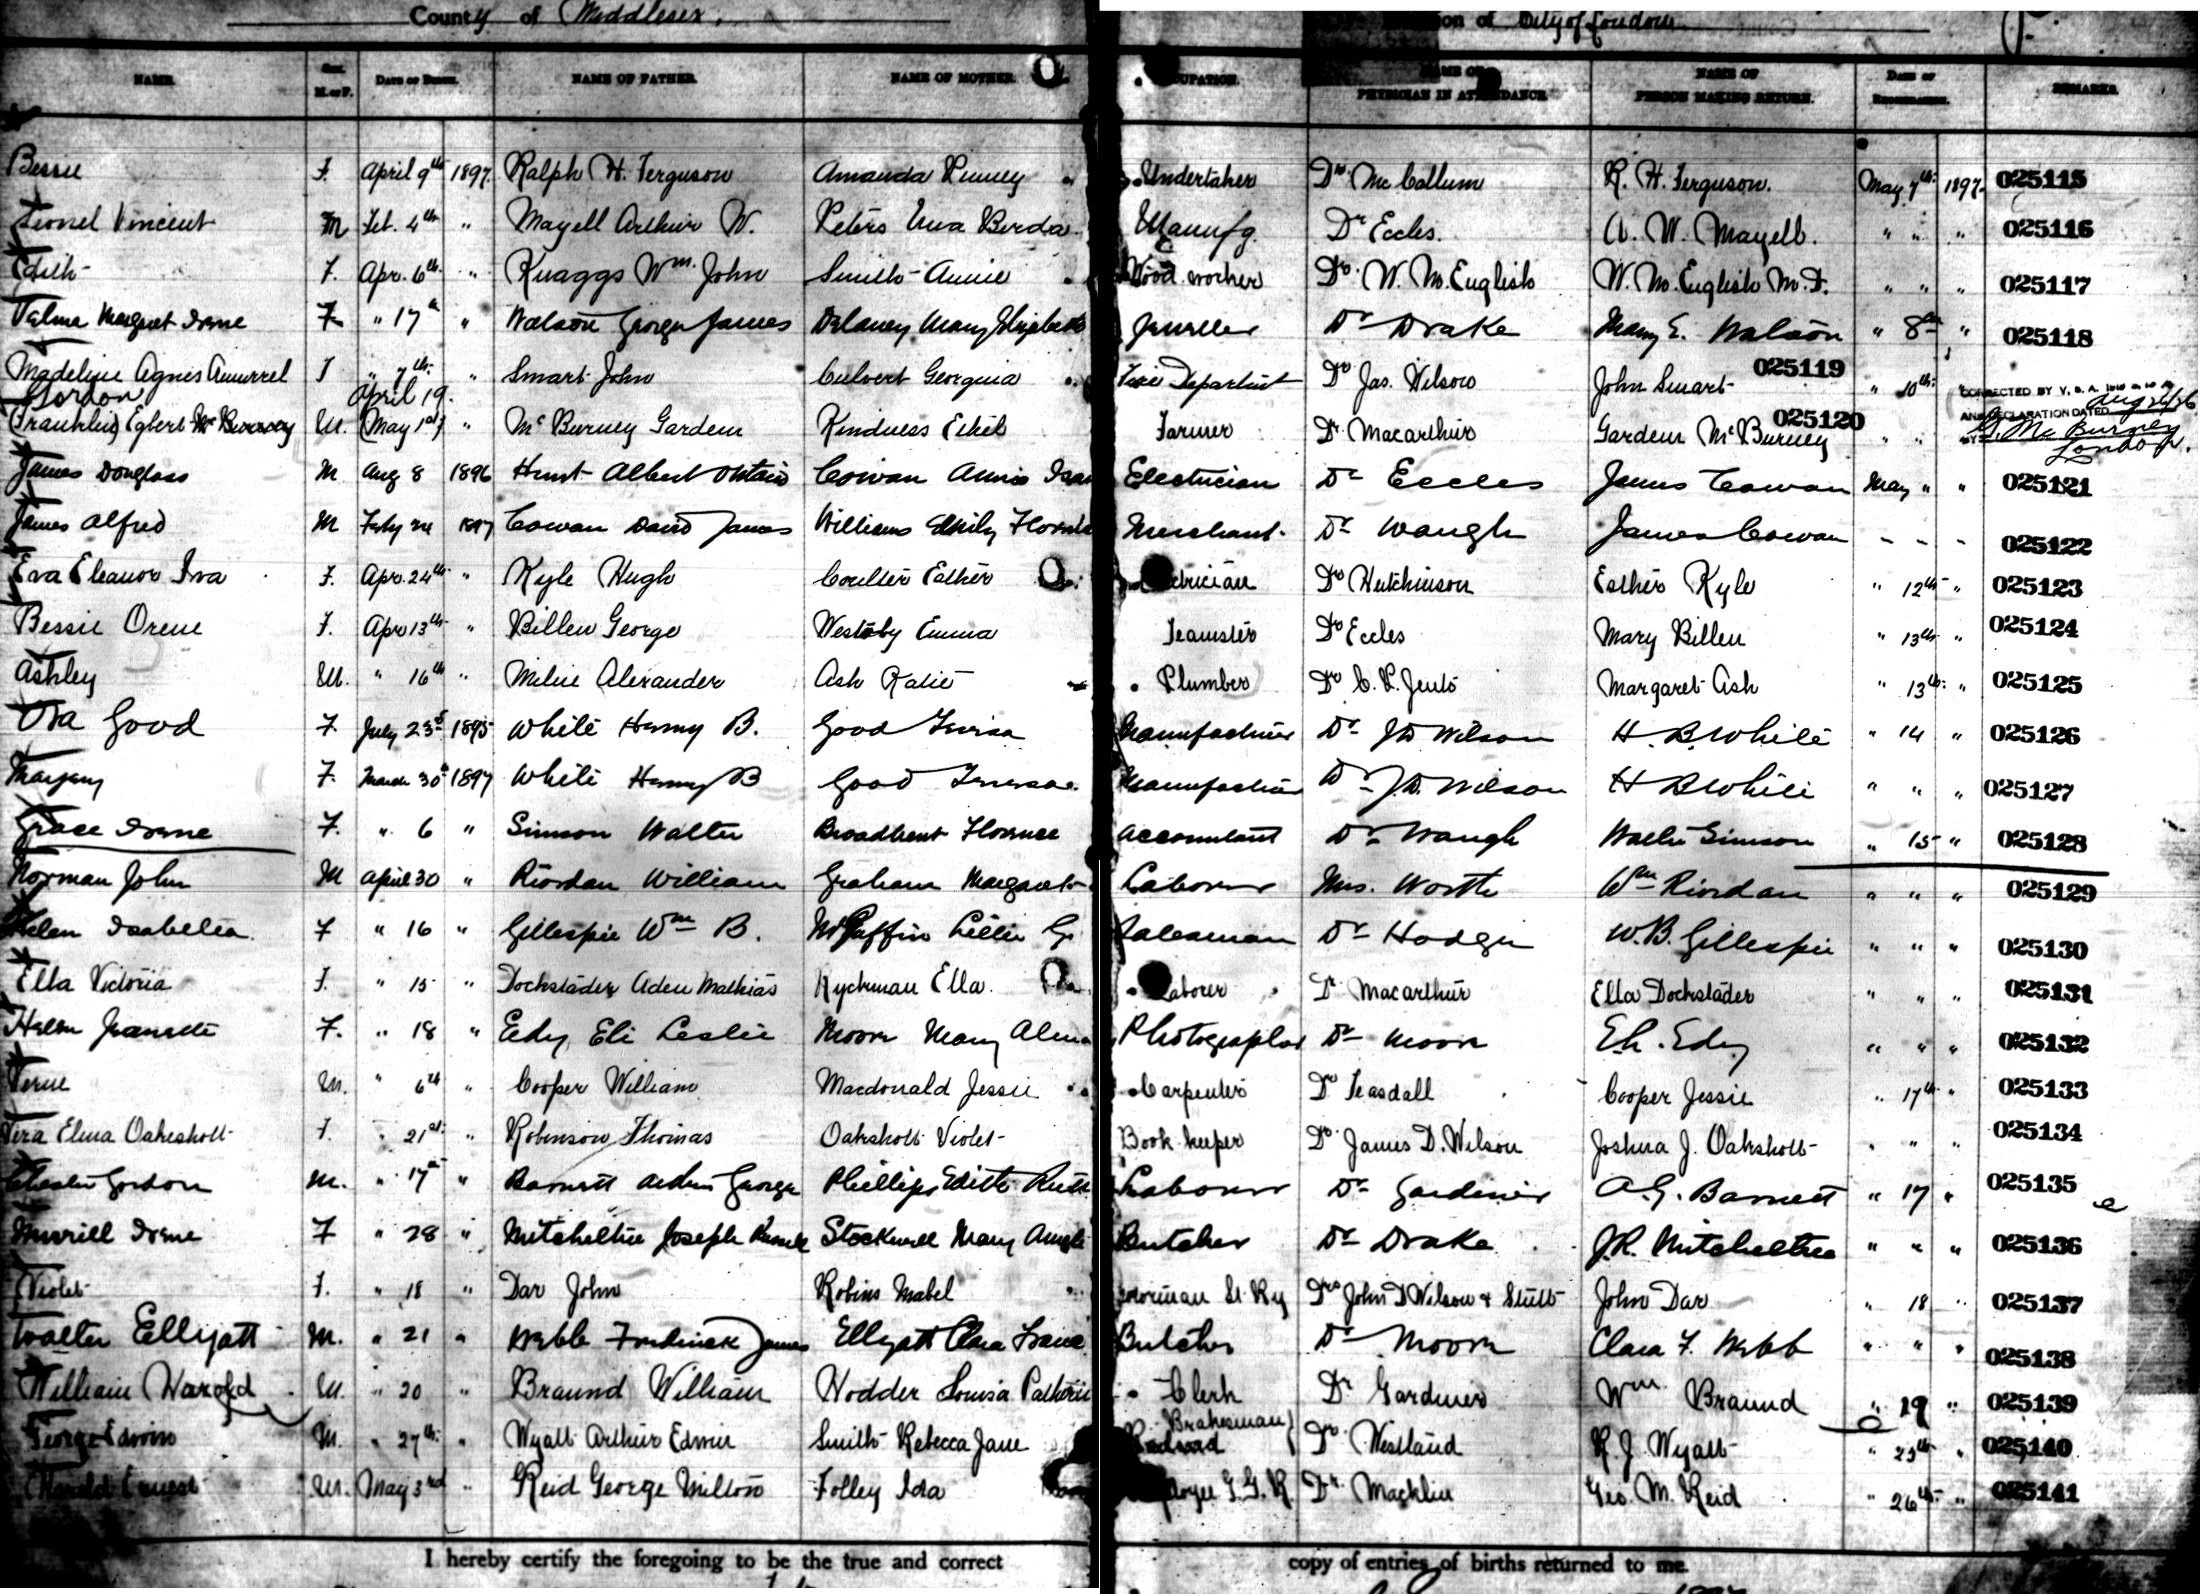 County of Middlesex. on of City of London
NAME. Sex. M. or F. DATE OF BIRTH. NAME OF FATHER. NAME OF MOTHER. OCCUPATION. NAME OF PHYSICIAN IN ATTENDANCE. NAME OF PERSON MAKING RETURN. DATE OF REGISTRATION. REMARKS.
Bessie F. April 9th 1897. Ralph H. Ferguson Amanda Undertaker Dr. McCallum R. H. Ferguson. May 7th 1897. 025115
Lionel Vincent M Feb. 4th " Mayell Arthur W. Peters Una Manufg. Dr Eccles. A. W. Mayell. " " " 025116
Edith F. Apr. 6th " Knaggs Wm. John Smith Annie Wood worker Dr. W. M. English W. M. English M.D. " " " 025117
Velma Margret Irene F " 17th " Watson George James Delaney Mary Elizabeth Jeweller Dr Drake Mary E. Watson " 8th " 025118
Madeline Agnes F " 7th " Smart John Culvert Georgina Fire Department Dr Jas. Wilson John Smart 025119 " 10th
Gordon April 19. CORRECTED BY V. S. A. Aug 26/26
(Franklin) Egbert McBurney M. (May 1st) " McBurney Gardem Kindness Ethel Farmer Dr. Macarthur Gardem McBurney 025120 " " AND DECLARATION DATED BY G. McBurney London.
James Douglass M Aug 8 1896 Hunt Albert Ontario Cowan Annie Electrician Dr Eccles James Cowan May " " 025121
James Alfred M 1897 Cowan David James Williams Emily Merchant. Dr Waugh James Cowan - - - 025122
Eva Eleanor Iva F. Apr. 24th " Kyle Hugh Coulter Esther Dr Hutchinson Esther Kyle " 12th " 025123
Bessie Orene F. Apr 13th " Billen George Westoby Emma Teamster Dr Eccles Mary Billen " 13th " 025124
Ashley M. " 16th " Milne Alexander Ash Katie Plumber Dr C. P. Margaret Ash " 13th " 025125
Good F. July 23rd 1895 White Henry B. Good Manufacturer Dr J D Wilson H. B. White " 14 " 025126
Marjory F. March 30 1897 White Henry B Good Manufacturer Dr J. D. Wilson H B White " " " 025127
Grace Irene F. " 6 " Simson Walter Broadbent Florence Accountant Dr Waugh Walter Simson " 15 " 025128
Norman John M April 30 " Riordan William Graham Margaret Laborer Mrs. Worth Wm Riordan " " " 025129
Helen Isabella F " 16 " Gillespie Wm B. McGaffin Lillie G. Salesman Dr Hodge W. B. Gillespie " " " 025130
Ella Victoria F. " 15 " Dockstader Aden Mathias Ryckman Ella. Laborer Dr. Macarthur Ella Dockstader " " " 025131
Helen Jeanette F. " 18 " Edy Eli Leslie Moore Mary Alma Photographer Dr Moore E. L. Edy " " " 025132
Verne M. " 6th " Cooper William Macdonald Jessie Carpenter Dr Teasdall Cooper Jessie " 17th " 025133
Vera Elma Oakeshott F. " 21st " Robinson Thomas Oakshott Violet Book keeper Dr. James D. Wilson Joshua J. Oakshott " " " 025134
Chester Gordon M. " 17th " Barnett George Phillips Edith Ruth Laborer Dr Gardiner A. G. Barnett " 17 " 025135
Murrill Irene F " 28 " Mitcheltree Joseph Russell Stockwell Mary Butcher Dr Drake J. R. Mitcheltree " " " 025136
Violet F. " 18 " Dar John Robins Mabel St. Ry Drs John D Wilson & John Dar " 18 " 025137
Walter Ellyatt M. " 21 " Webb Frederick James Ellyatt Clara Butcher Dr Moore Clara F. Webb " " " 025138
William Harold M. " 20 " Braund William Hodder Louisa Clerk Dr Gardiner Wm Braund " 19 " 025139
George Edwin M. " 27th " Wyatt Arthur Edwin Smith Rebecca Jane Brakesman Dr. Westland R. J. Wyatt " 25th " 025140
Harold Ernest M. May 3rd " Reid George Milton Folley Ida Dr. Macklin Geo. M. Reid " 26th " 025141
I hereby certify the foregoing to be the true and correct copy of entries of births returned to me.